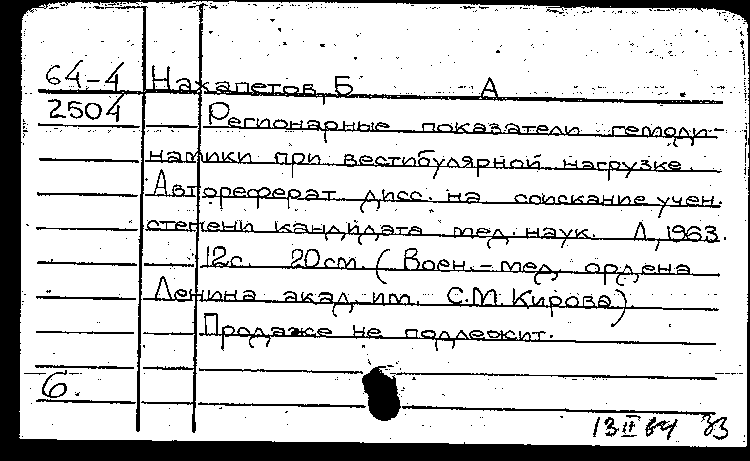 64-4 Нахапетов, Б А
2504 Регионарные показатели гемоди-
намики при вестибулярной нагрузке.
Автореферат дисс. на соискание учен.
степени кандидата мед. наук. Л., 1963.
12с. 20см. (Воен.-мед. ордена
Ленина акад. им. С.М. Кирова).
Продаже не подлежит.
6.
13 II 64 33